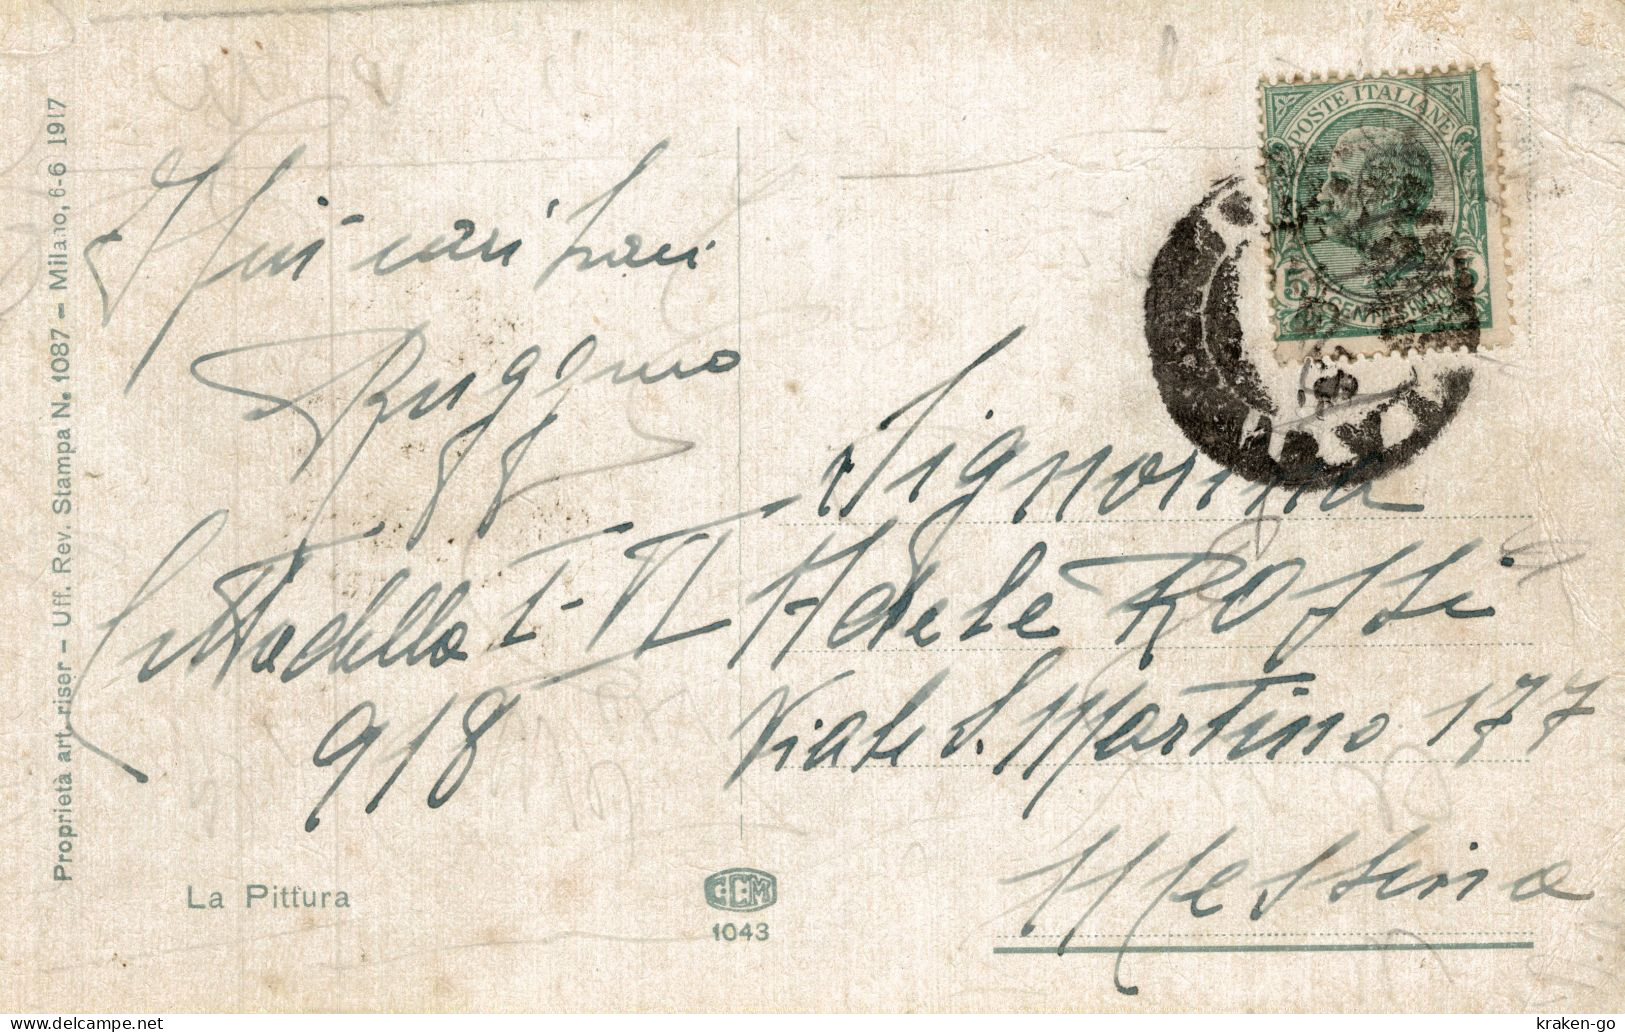 Proprietà art. riser - Uff. Rev. Stampa N. 1087 - Milano, 6-6 1917
POSTE ITALIANE
5 CENTESIMI 5
più cari baci
Ruggero
Cittadella I-VI
918
Signorina
Adele Rossi
Viale S. Martino 177
Messina
La Pittura
CCM
1043
kraken-go